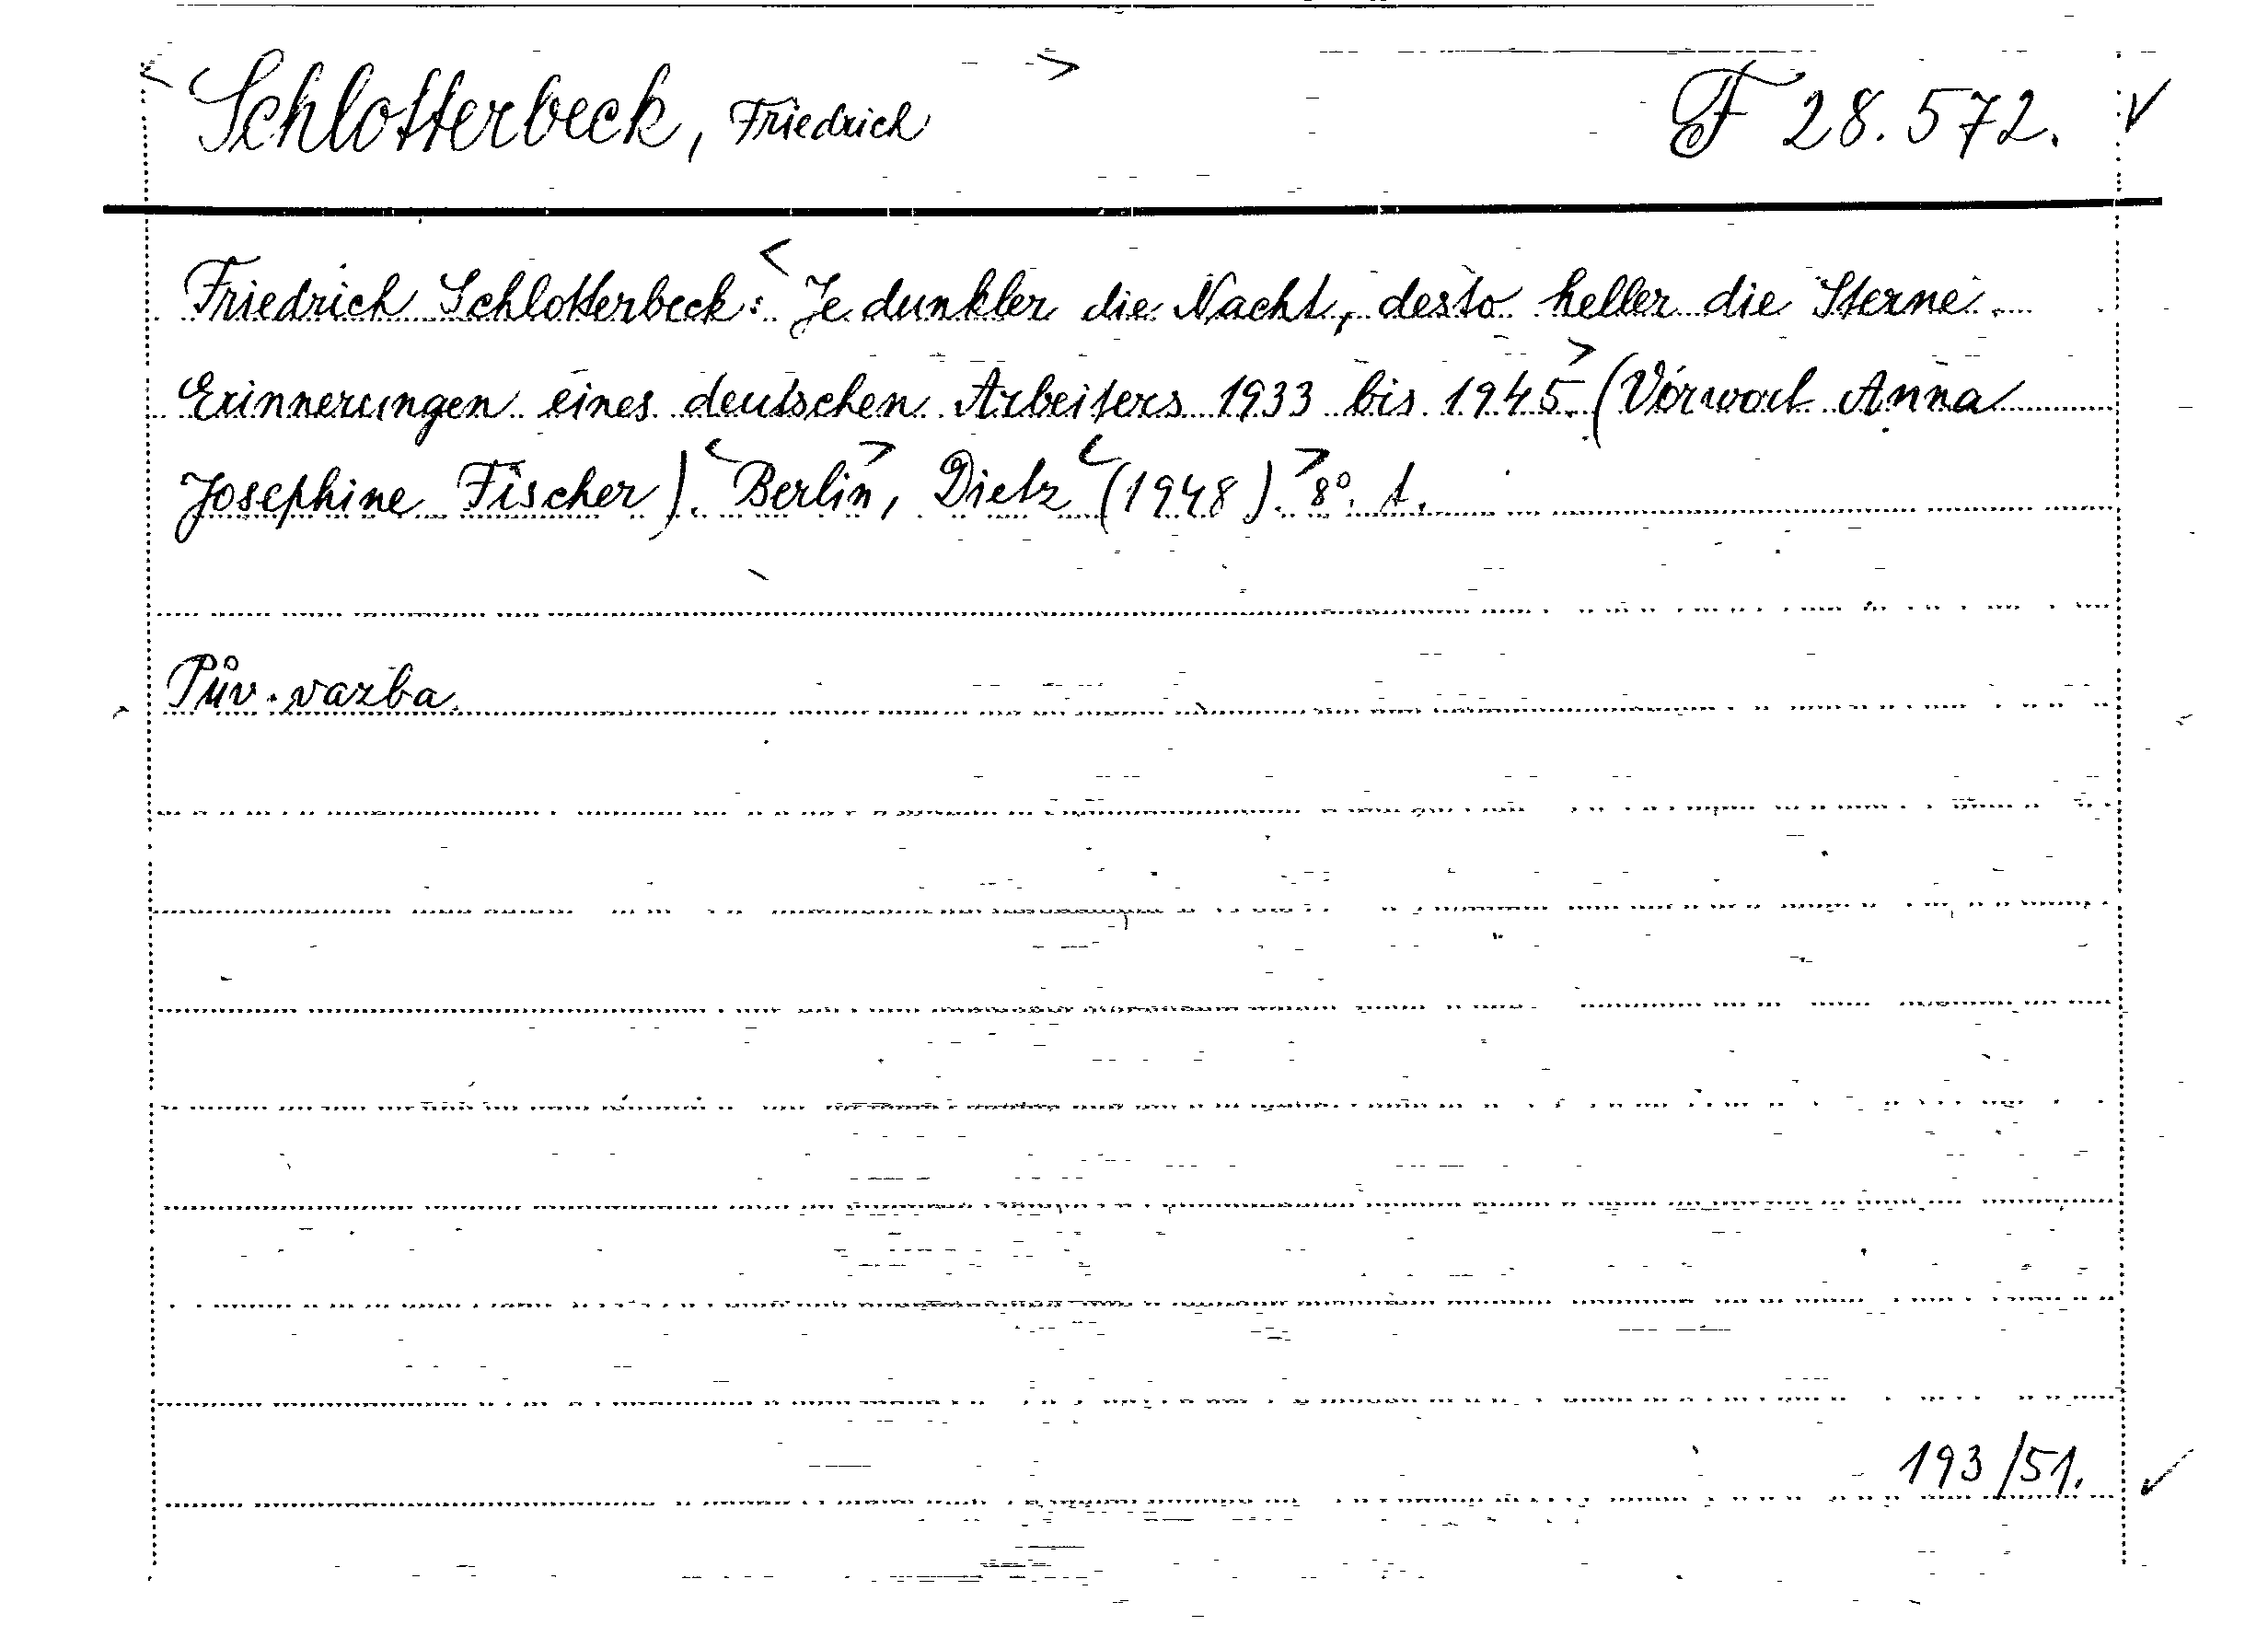 Schlotterbeck, Friedrich F 28.572.
Friedrich Schlotterbeck: Je dunkler die Nacht, desto heller die Sterne.
Erinnerungen eines deutschen Arbeiters 1933 bis 1945. (Vorwort Anna
Josephine Fischer). Berlin, Dietz (1948). 8°. t.
Pův. vazba.
193/51.